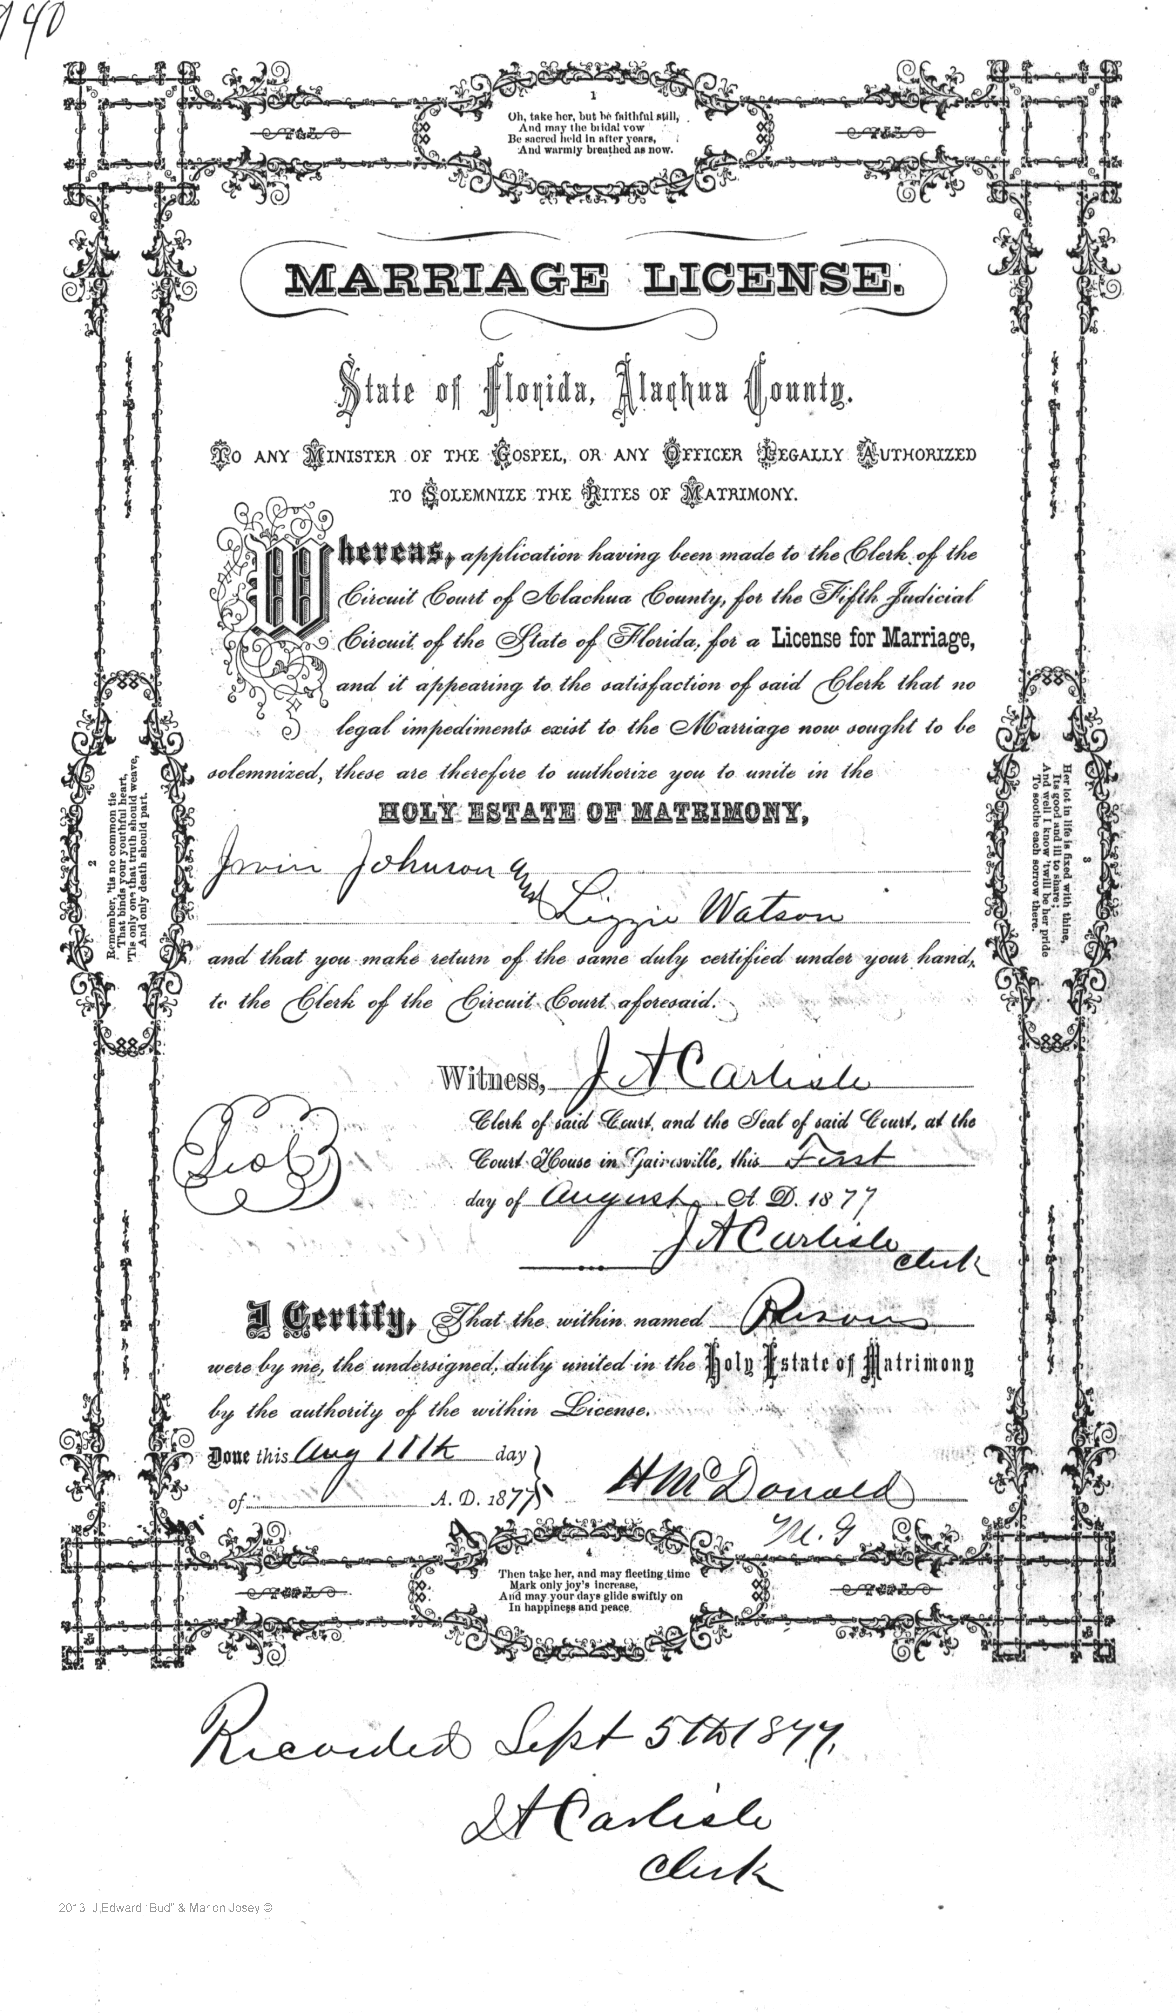 140
1
Oh, take her, but be faithful still,
And may the bridal vow
Be sacred held in after years,
And warmly breathed as now.
MARRIAGE LICENSE.
State of Florida, Alachua County.
TO ANY MINISTER OF THE GOSPEL, OR ANY OFFICER LEGALLY AUTHORIZED
TO SOLEMNIZE THE RITES OF MATRIMONY.
Whereas, application having been made to the Clerk of the
Circuit Court of Alachua County, for the Fifth Judicial
Circuit of the State of Florida, for a License for Marriage,
and it appearing to the satisfaction of said Clerk that no
legal impediments exist to the Marriage now sought to be
solemnized, these are therefore to authorize you to unite in the
HOLY ESTATE OF MATRIMONY,
Irvin Johnson and
Lizzie Watson
and that you make return of the same duly certified under your hand,
to the Clerk of the Circuit Court aforesaid.
2
Remember, 'tis no common tie
That binds your youthful heart,
'Tis only one that truth should weave,
And only death should part.
3
Her lot in life is fixed with thine,
Its good and ill to share;
And well I know 'twill be her pride
To soothe each sorrow there.
Witness, J A Carlisle
Clerk of said Court, and the Seal of said Court, at the
Court House in Gainesville, this First
day of August A. D. 1877
J A Carlisle
Clerk
I Certify, That the within named Persons
were by me, the undersigned, duly united in the Holy Estate of Matrimony
by the authority of the within License.
Done this Aug 11th day
of A. D. 1877
H McDonald
M. G
4
Then take her, and may fleeting time
Mark only joy's increase,
And may your days glide swiftly on
In happiness and peace.
Recorded Sept 5th 1877.
J A Carlisle
Clerk
2013 J,Edward "Bud" & Marion Josey ©